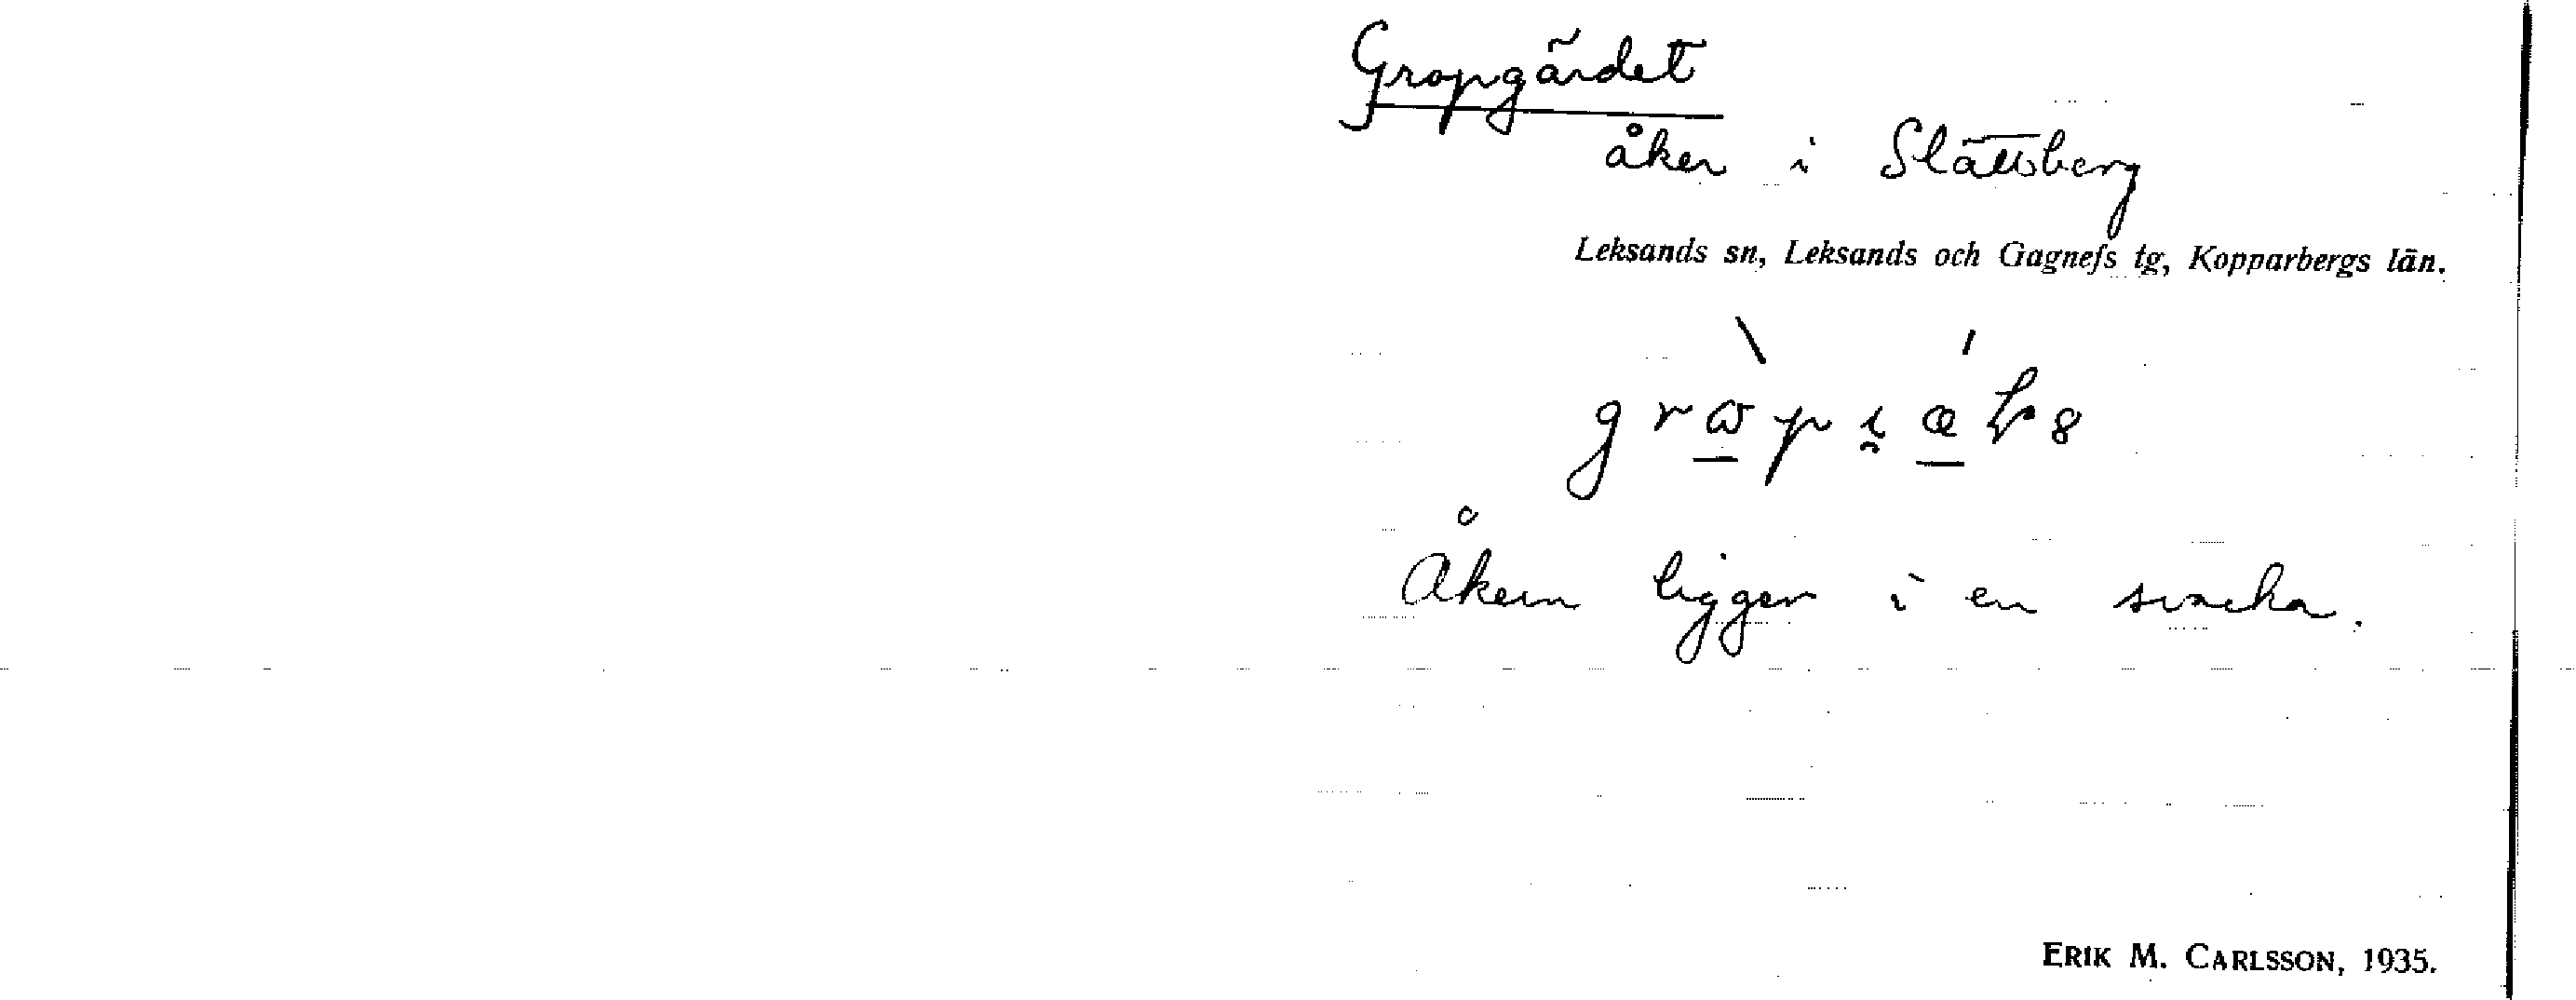 Gropgärdet
åker i Slättberg
Leksands sn, Leksands och Gagnefs tg, Kopparbergs län.
Åkern ligger i en svacka.
ERIK M. CARLSSON, 1935.